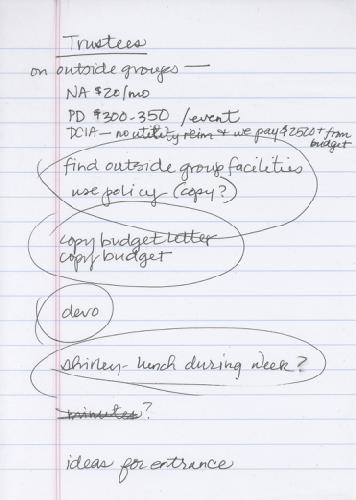 Trustees
on outside groups —
NA $20/mo
PD $300-350 /event
DCIA — no utility reim & we pay $2520+ from
budget
find outside group facilities
use policy (copy?)
copy budget letter
copy budget
devo
Shirley - lunch during week?
minutes?
ideas for entrance